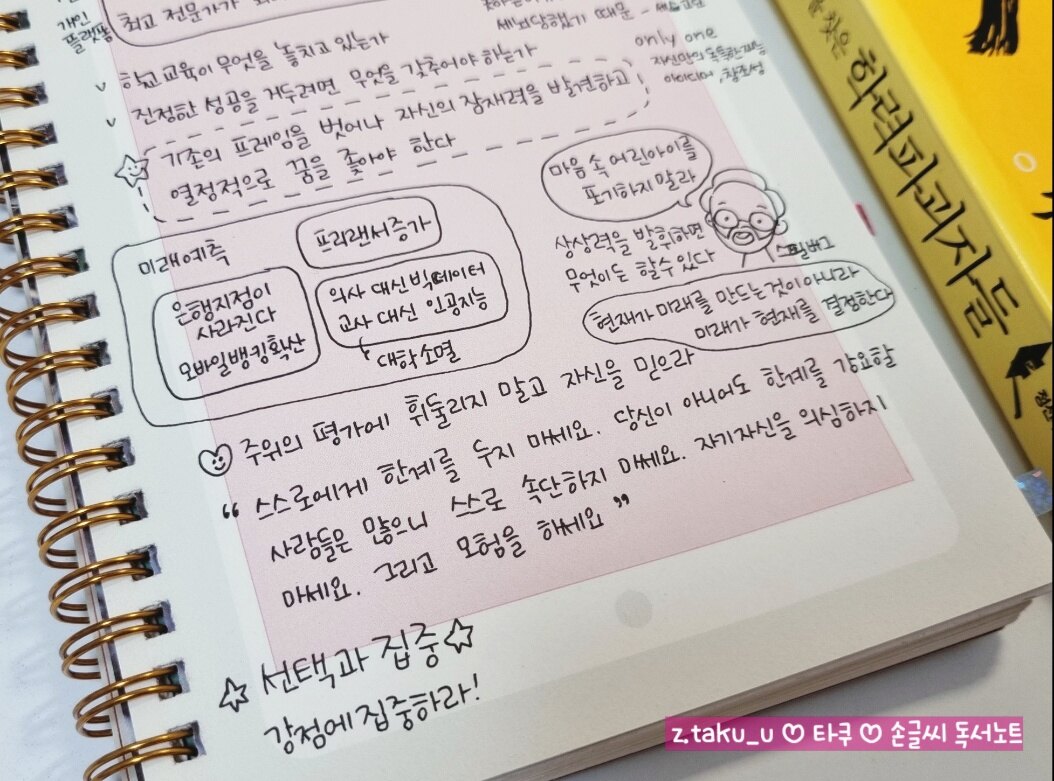 개인
플랫폼
최고 전문가가
세뇌당했기 때문
only one
자신만의 독특한 재능
아이디어, 창조성
학교교육이 무엇을 놓치고 있는가
진정한 성공을 거두려면 무엇을 갖추어야 하는가
기존의 프레임을 벗어나 자신의 잠재력을 발견하고
열정적으로 꿈을 좇아야 한다
마음 속 어린아이를
포기하지 말라
상상력을 발휘하면
무엇이든 할수있다
스필버그
현재가 미래를 만드는것이 아니라
미래가 현재를 결정한다
미래예측
프리랜서증가
은행지점이
사라진다
모바일뱅킹확산
의사 대신 빅데이터
교사 대신 인공지능
대학소멸
주위의 평가에 휘둘리지 말고 자신을 믿으라
“ 스스로에게 한계를 두지 마세요. 당신이 아니어도 한계를 강요할
사람들은 많으니 스스로 속단하지 마세요. 자기자신을 의심하지
마세요. 그리고 모험을 해세요 ”
☆ 선택과 집중 ☆
강점에 집중하라!
꿈을 찾은 학력파괴자들
z.taku_u ♡ 타쿠 ♡ 손글씨 독서노트